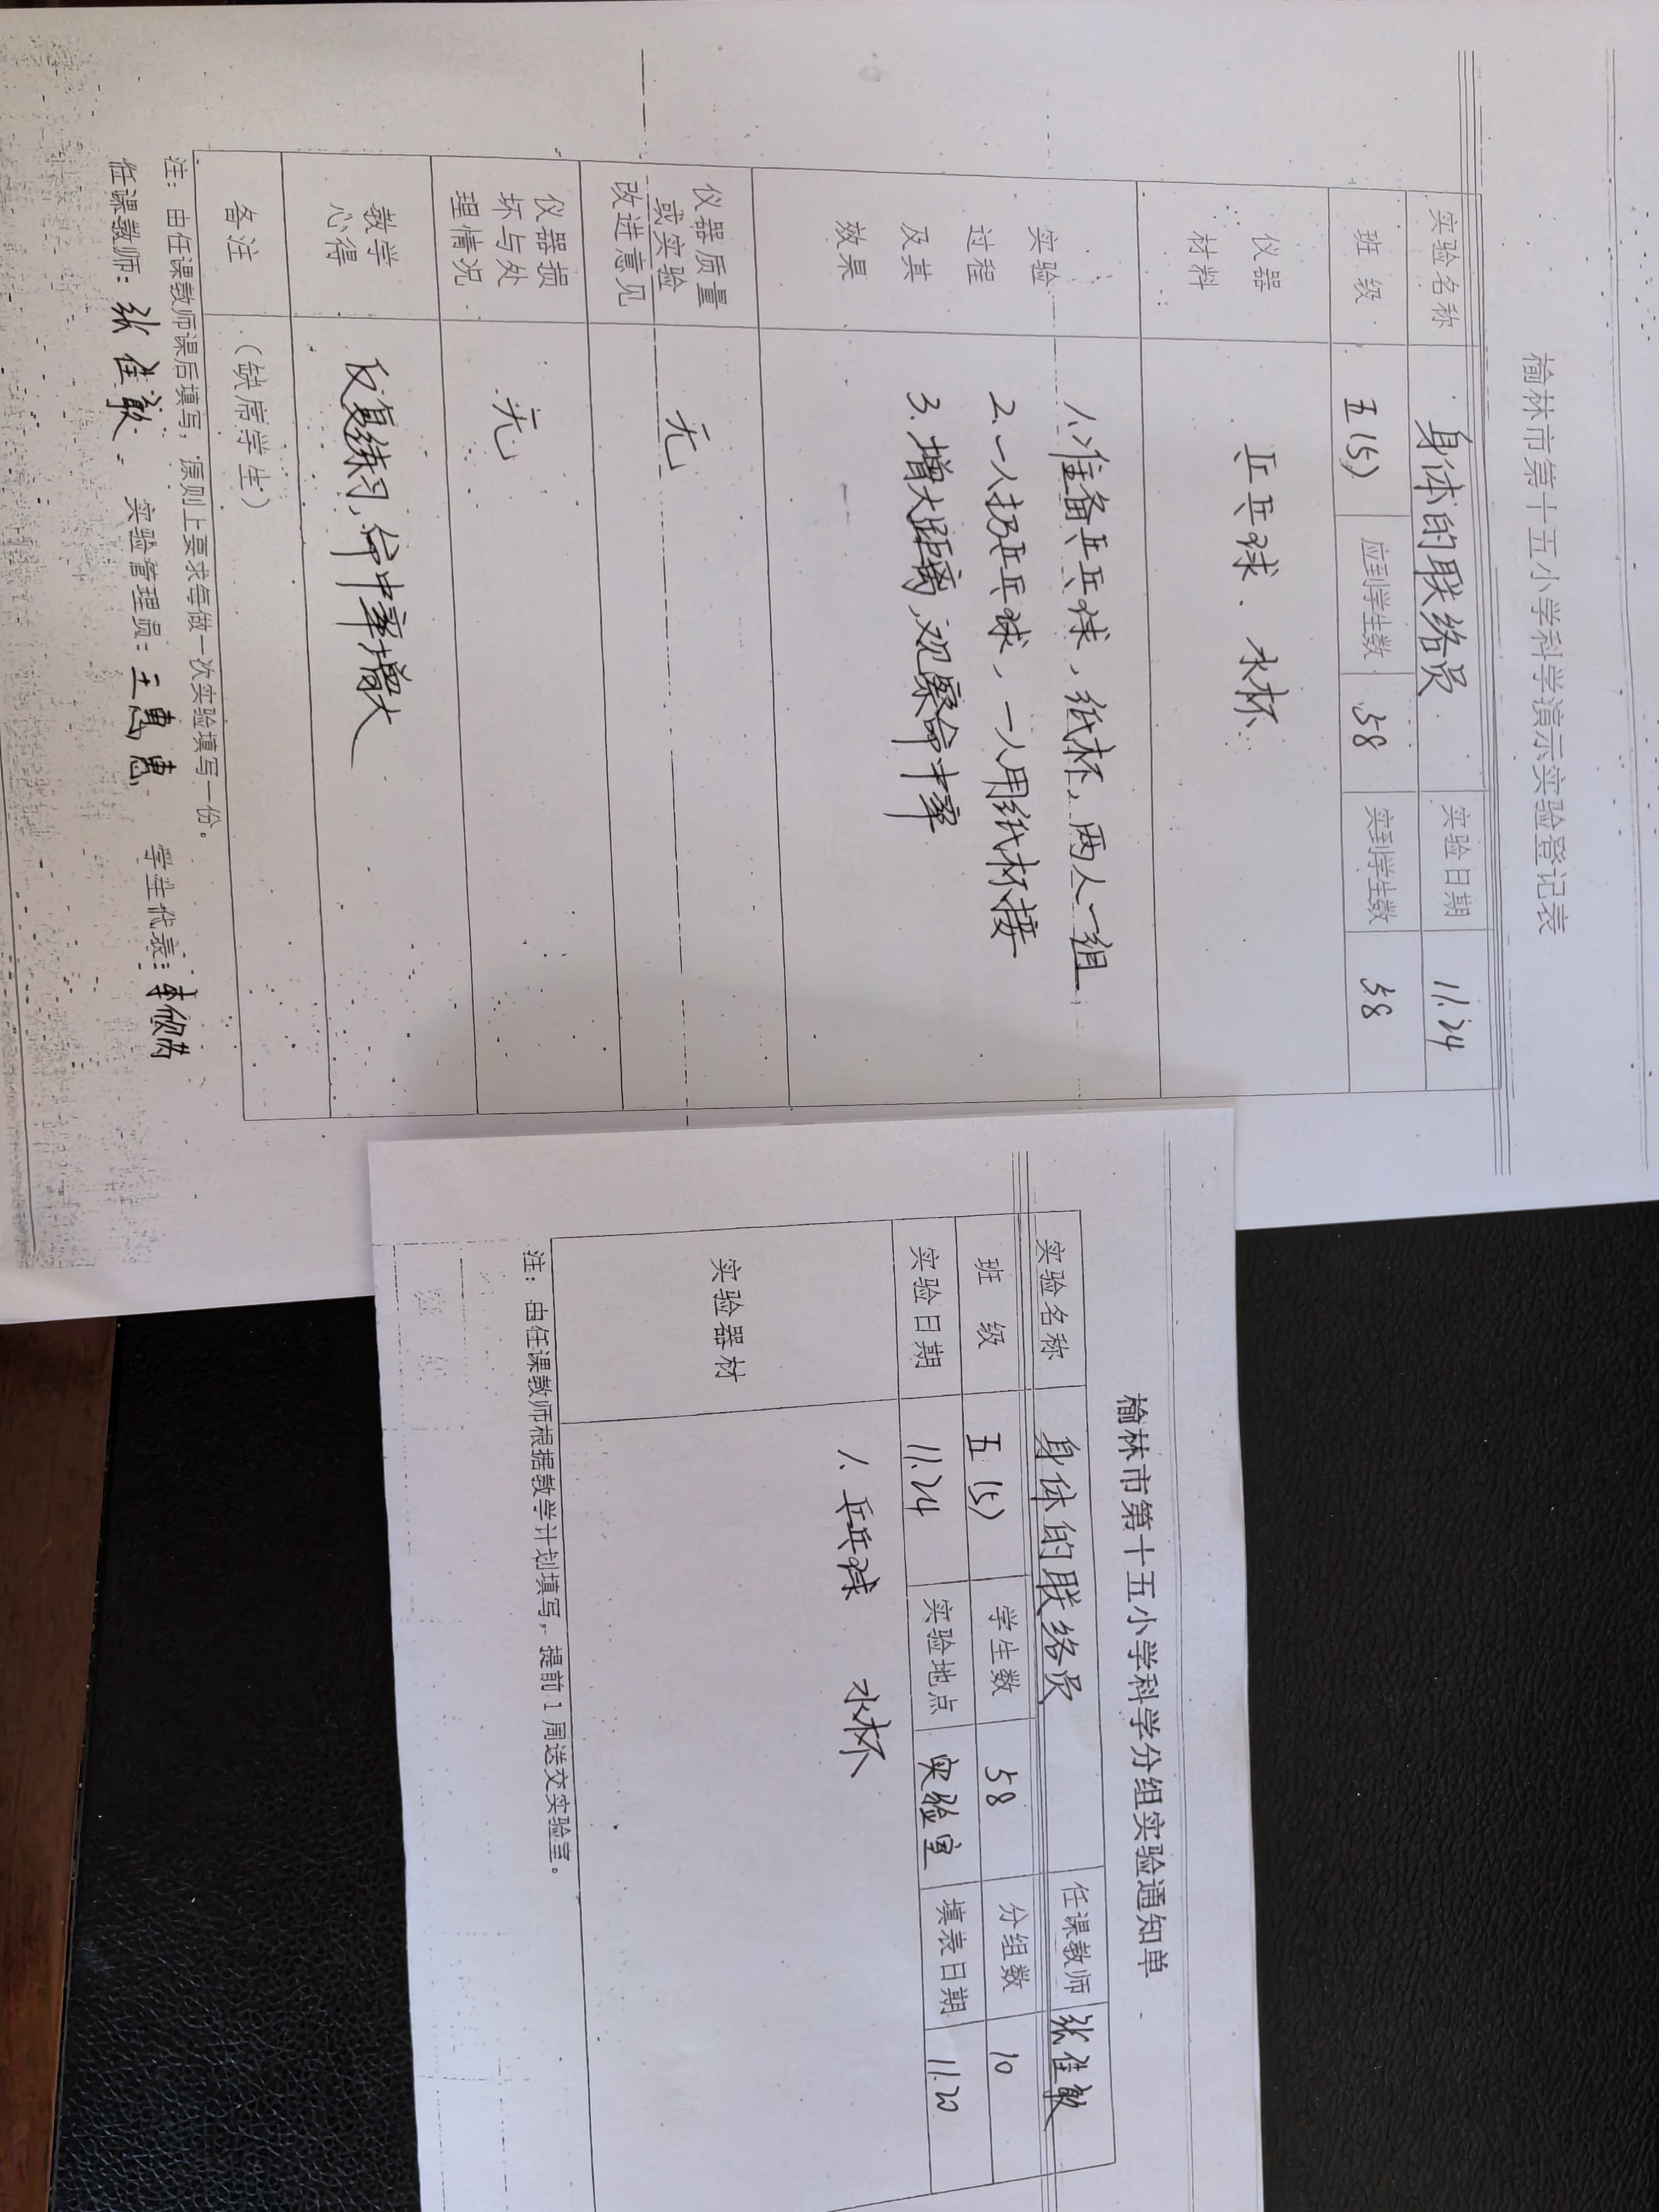 榆林市第十五小学科学演示实验登记表
实验名称 身体的联络员 实验日期 11.24
班级 五(5) 应到学生数 58 实到学生数 58
仪器材料 乒乓球、水杯
实验过程及其效果
1.准备乒乓球,纸杯,两人一组
2.一人扔乒乓球,一人用纸杯接
3.增大距离,观察命中率
仪器质量或实验改进意见 无
仪器损坏与处理情况 无
教学心得 反复练习,命中率增大
备注 (缺席学生)
注:由任课教师课后填写,原则上要求每做一次实验填写一份。
任课教师:张佳敏 实验管理员:王惠惠 学生代表:
榆林市第十五小学科学分组实验通知单
实验名称 身体的联络员 任课教师 张佳敏
班级 五(5) 学生数 58 分组数 10
实验日期 11.24 实验地点 实验室 填表日期 11.20
实验器材 1.乒乓球 水杯
注:由任课教师根据教学计划填写,提前1周送交实验室。